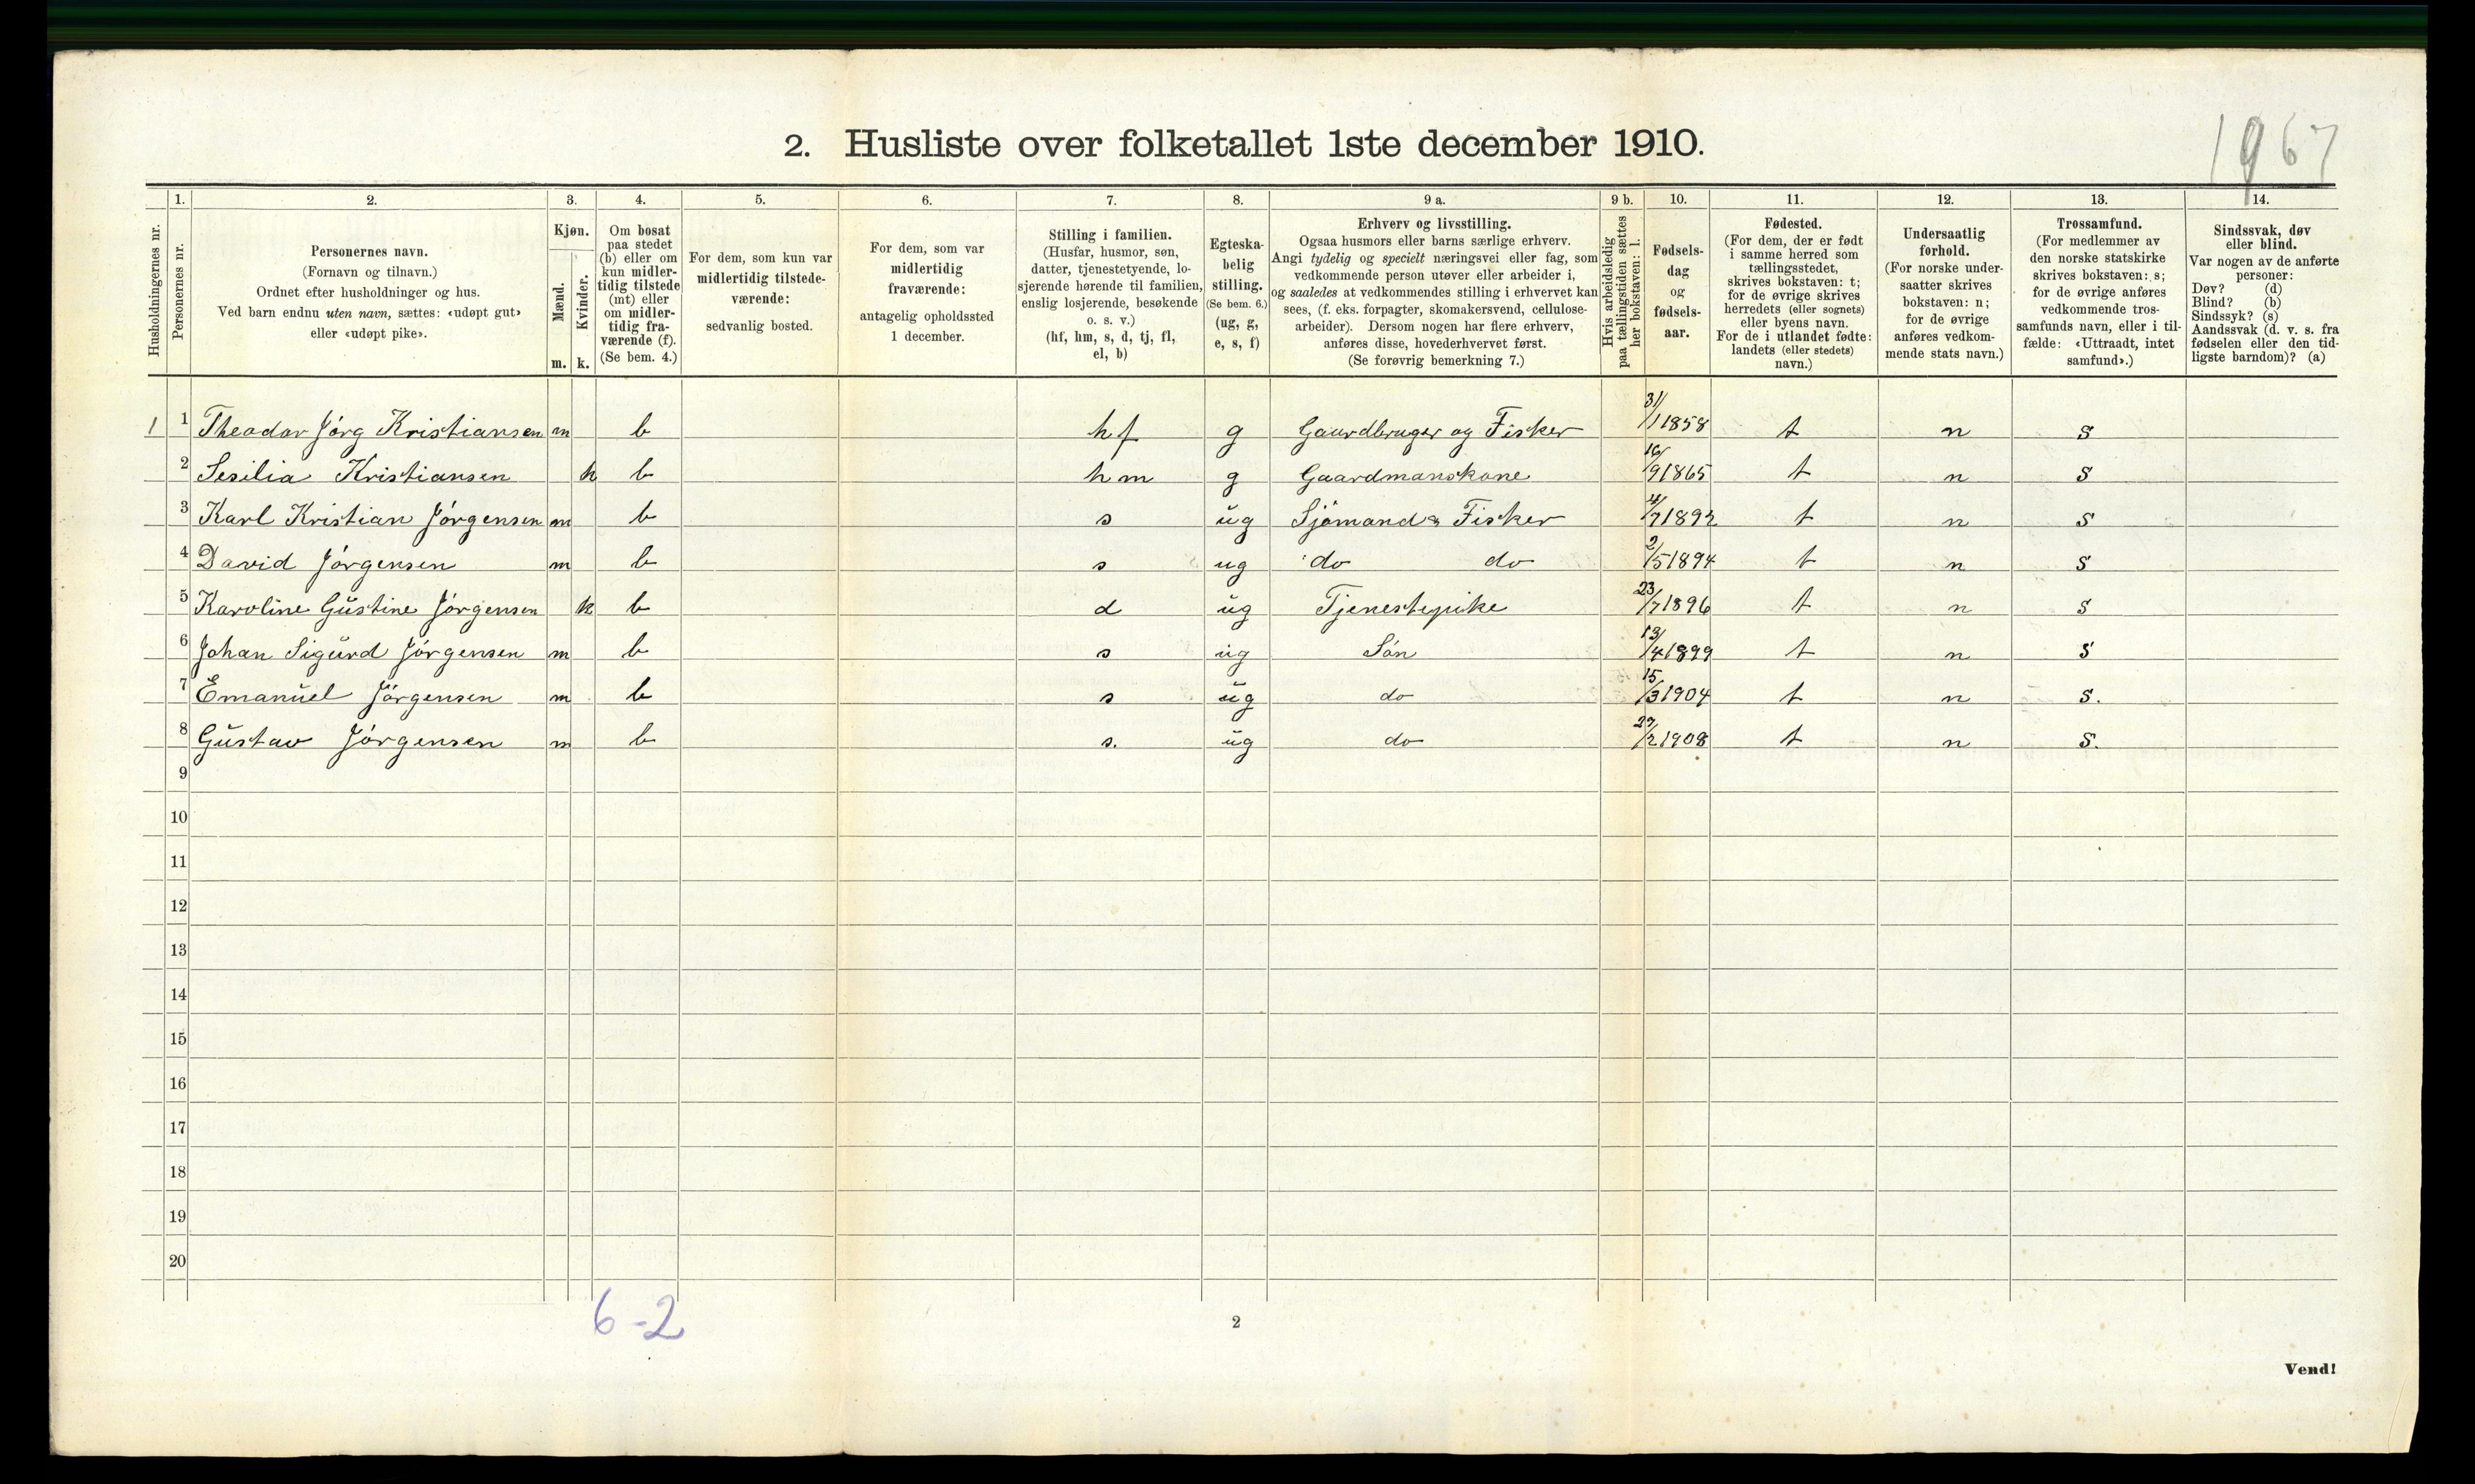 1967
2. Husliste over folketallet 1ste december 1910.
Husholdningernes nr.
1. Personernes nr.
2. Personernes navn. (Fornavn og tilnavn.) Ordnet efter husholdninger og hus. Ved barn endnu uten navn, sættes: «udøpt gut» eller «udøpt pike».
3. Kjøn. Mænd. m. Kvinder. k.
4. Om bosat paa stedet (b) eller om kun midlertidig tilstede (mt) eller om midlertidig fraværende (f). (Se bem. 4.)
5. For dem, som kun var midlertidig tilstedeværende: sedvanlig bosted.
6. For dem, som var midlertidig fraværende: antagelig opholdssted 1 december.
7. Stilling i familien. (Husfar, husmor, søn, datter, tjenestetyende, losjerende hørende til familien, enslig losjerende, besøkende o. s. v.) (hf, hm, s, d, tj, fl, el, b)
8. Egteskabelig stilling. (Se bem. 6.) (ug, g, e, s, f)
9 a. Erhverv og livsstilling. Ogsaa husmors eller barns særlige erhverv. Angi tydelig og specielt næringsvei eller fag, som vedkommende person utøver eller arbeider i, og saaledes at vedkommendes stilling i erhvervet kan sees, (f. eks. forpagter, skomakersvend, cellulosearbeider). Dersom nogen har flere erhverv, anføres disse, hovederhvervet først. (Se forøvrig bemerkning 7.)
9 b. Hvis arbeidsledig paa tællingstiden sættes her bokstaven: l.
10. Fødselsdag og fødselsaar.
11. Fødested. (For dem, der er født i samme herred som tællingsstedet, skrives bokstaven: t; for de øvrige skrives herredets (eller sognets) eller byens navn. For de i utlandet fødte: landets (eller stedets) navn.)
12. Undersaatlig forhold. (For norske undersaatter skrives bokstaven: n; for de øvrige anføres vedkommende stats navn.)
13. Trossamfund. (For medlemmer av den norske statskirke skrives bokstaven: s; for de øvrige anføres vedkommende trossamfunds navn, eller i tilfælde: «Uttraadt, intet samfund».)
14. Sindssvak, døv eller blind. Var nogen av de anførte personer: Døv? (d) Blind? (b) Sindssyk? (s) Aandssvak (d. v. s. fra fødselen eller den tidligste barndom)? (a)
1 1 Theodor Jörg Kristiansen m b hf g Gaurdbruger og Fisker 31/1 1858 t n s
2 Sesilia Kristiansen k b hm g Gaardmanskone 16/9 1865 t n s
3 Karl Kristian Jörgensen m b s ug Sjömand & Fisker 4/7 1892 t n s
4 David Jörgensen m b s ug do do 2/5 1894 t n s
5 Karoline Gustine Jörgensen k b d ug Tjenestepike 23/7 1896 t n s
6 Johan Sigurd Jörgensen m b s ug Sön 13/4 1899 t n s
7 Emanuel Jörgensen m b s ug do 15/3 1904 t n s.
8 Gustav Jörgensen m b s. ug do 27/2 1908 t n s.
9
10
11
12
13
14
15
16
17
18
19
20
6-2
2
Vend!